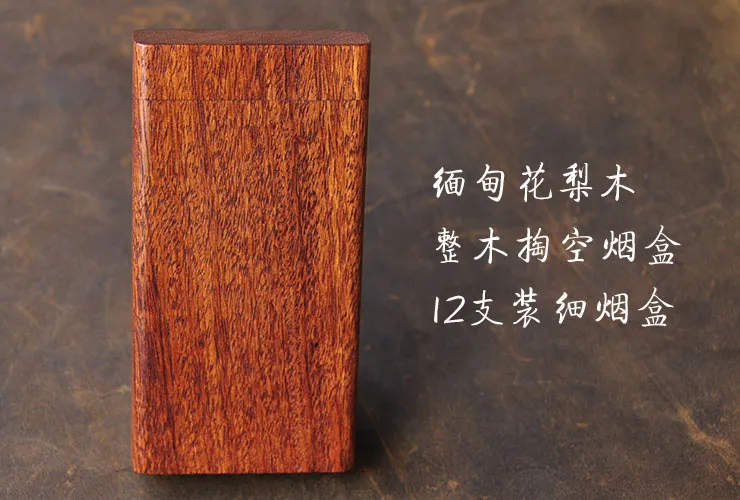 缅甸花梨木
整木掏空烟盒
12支装细烟盒